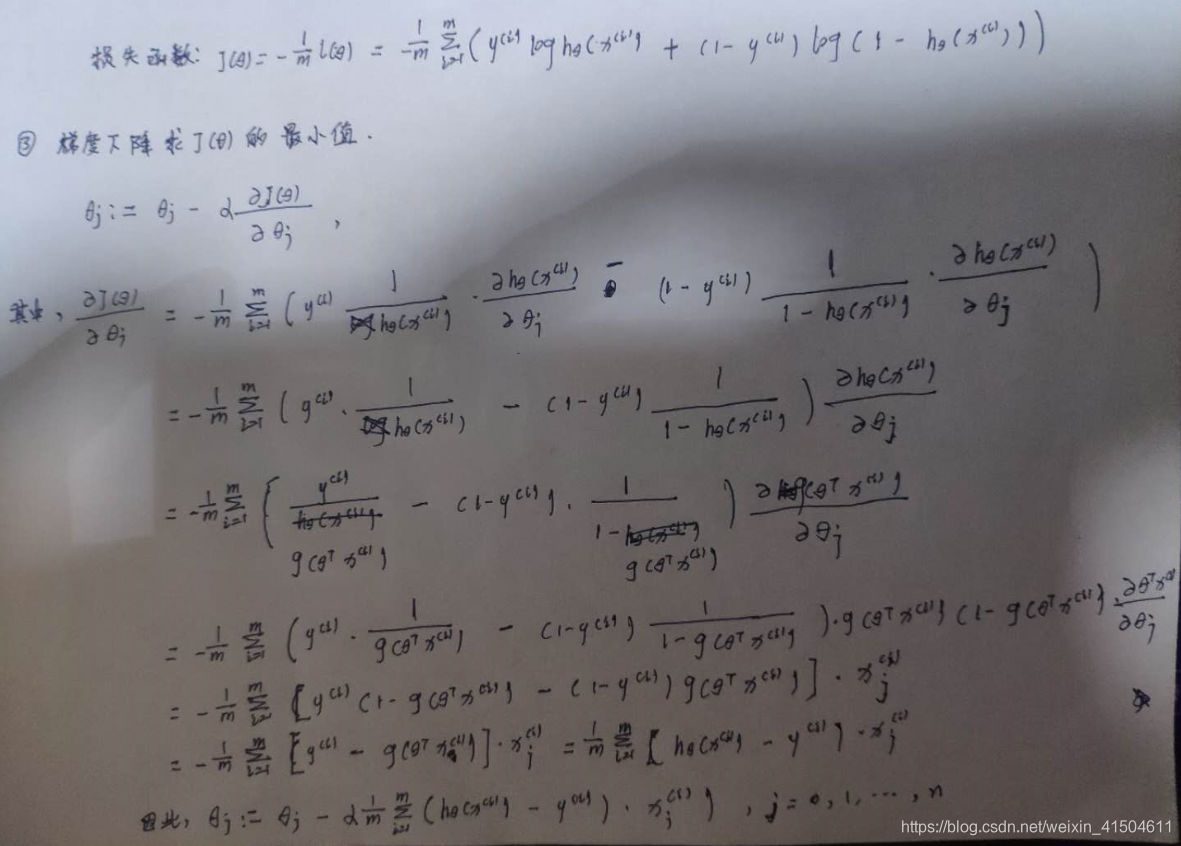 损失函数: J(θ) = -1/m l(θ) = -1/m Σ_{i=1}^{m} (y^(i) log hθ(x^(i)) + (1 - y^(i)) log (1 - hθ(x^(i))))
③ 梯度下降求 J(θ) 的最小值.
θj := θj - α ∂J(θ)/∂θj ,
其中, ∂J(θ)/∂θj = -1/m Σ_{i=1}^{m} (y^(i) 1/hθ(x^(i)) · ∂hθ(x^(i))/∂θj - (1 - y^(i)) 1/(1 - hθ(x^(i))) · ∂hθ(x^(i))/∂θj )
= -1/m Σ_{i=1}^{m} ( y^(i) · 1/hθ(x^(i)) - (1 - y^(i)) 1/(1 - hθ(x^(i))) ) ∂hθ(x^(i))/∂θj
= -1/m Σ_{i=1}^{m} ( y^(i)/g(θ^T x^(i)) - (1 - y^(i)) · 1/(1 - g(θ^T x^(i))) ) ∂g(θ^T x^(i))/∂θj
= -1/m Σ_{i=1}^{m} (y^(i) · 1/g(θ^T x^(i)) - (1 - y^(i)) 1/(1 - g(θ^T x^(i))) ) · g(θ^T x^(i)) (1 - g(θ^T x^(i))) · ∂θ^T x^(i)/∂θj
= -1/m Σ_{i=1}^{m} [y^(i) (1 - g(θ^T x^(i))) - (1 - y^(i)) g(θ^T x^(i))] · xj^(i)
= -1/m Σ_{i=1}^{m} [y^(i) - g(θ^T x^(i))] · xj^(i) = 1/m Σ_{i=1}^{m} [hθ(x^(i)) - y^(i)) · xj^(i)
因此, θj := θj - α 1/m Σ_{i=1}^{m} (hθ(x^(i)) - y^(i)) · xj^(i) ) , j = 0, 1, ⋯, n
https://blog.csdn.net/weixin_41504611